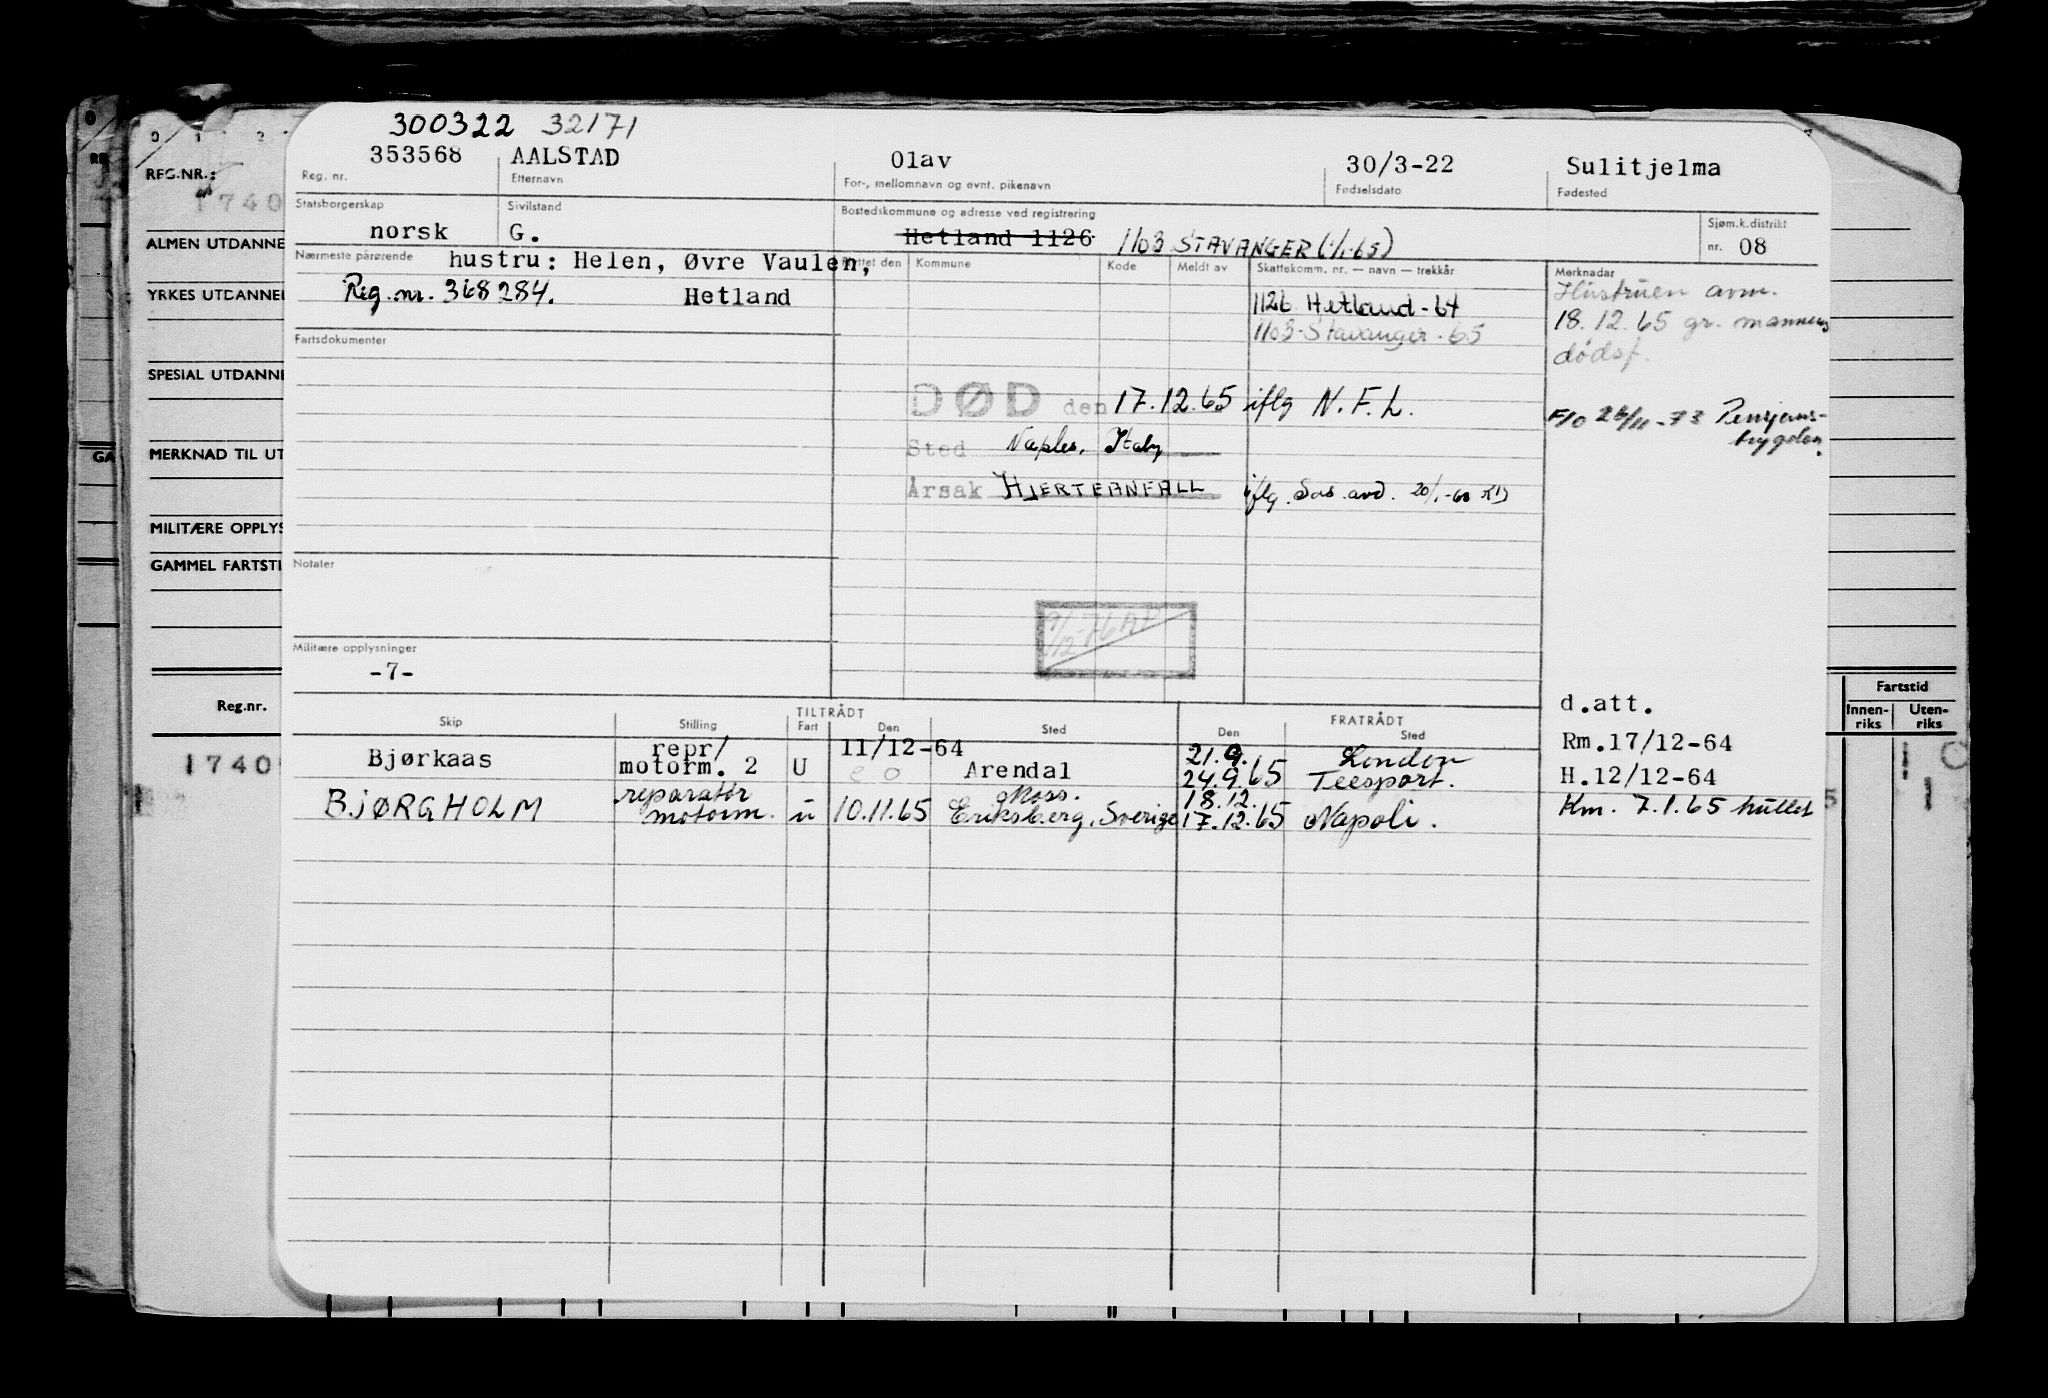 300322 32171
353568 AALSTAD Olav 30/3-22 Sulitjelma
Reg. nr. Etternavn For-, mellomnavn og evnt. pikenavn Fødselsdato Fødested
Statsborgerskap Sivilstand Bostedskommune og adresse ved registrering Sjøm.k.distrikt
norsk G. Hetland 1126 1103 STAVANGER (1/1-65) nr. 08
Nærmeste pårørende hustru: Helen, Øvre Vaulen,
Reg. nr. 368284. Hetland
Flyttet den Kommune Kode Meldt av Skattekomm. nr. — navn — trekkår Merknadar
1126 Hetland - 64
1103 Stavanger - 65
Hustruen avm.
18.12.65 gr. mannens
dødsf.
F/O 26/11-73 Pensjons-
trygden.
Fartsdokumenter
DØD den 17.12.65 iflg N.F.L.
Sted Naples, Italy
Årsak HJERTEANFALL iflg. Sos. avd. 20/1-66
Notater
Militære opplysninger
-7-
d.att.
Rm.17/12-64
H.12/12-64
Km. 7.1.65 hullet
TILTRÅDT FRATRÅDT
Skip Stilling Fart Den Sted Den Sted
Bjørkaas repr/ motorm. 2 U 11/12-64 Arendal 21.9. London
24.9.65 Teesport.
BJØRGHOLM reparatør motorm. u 10.11.65 Moss. Eriksberg, Sverige 18.12.
17.12.65 Napoli.
0 1 2
REG.NR.:
1740
ALMEN UTDANNE
YRKES UTDANNE
SPESIAL UTDANNE
MERKNAD TIL UT
MILITÆRE OPPLYS
GAMMEL FARTSTI
Reg.nr.
1740
GA
Fartstid
Innen-riks Uten-riks